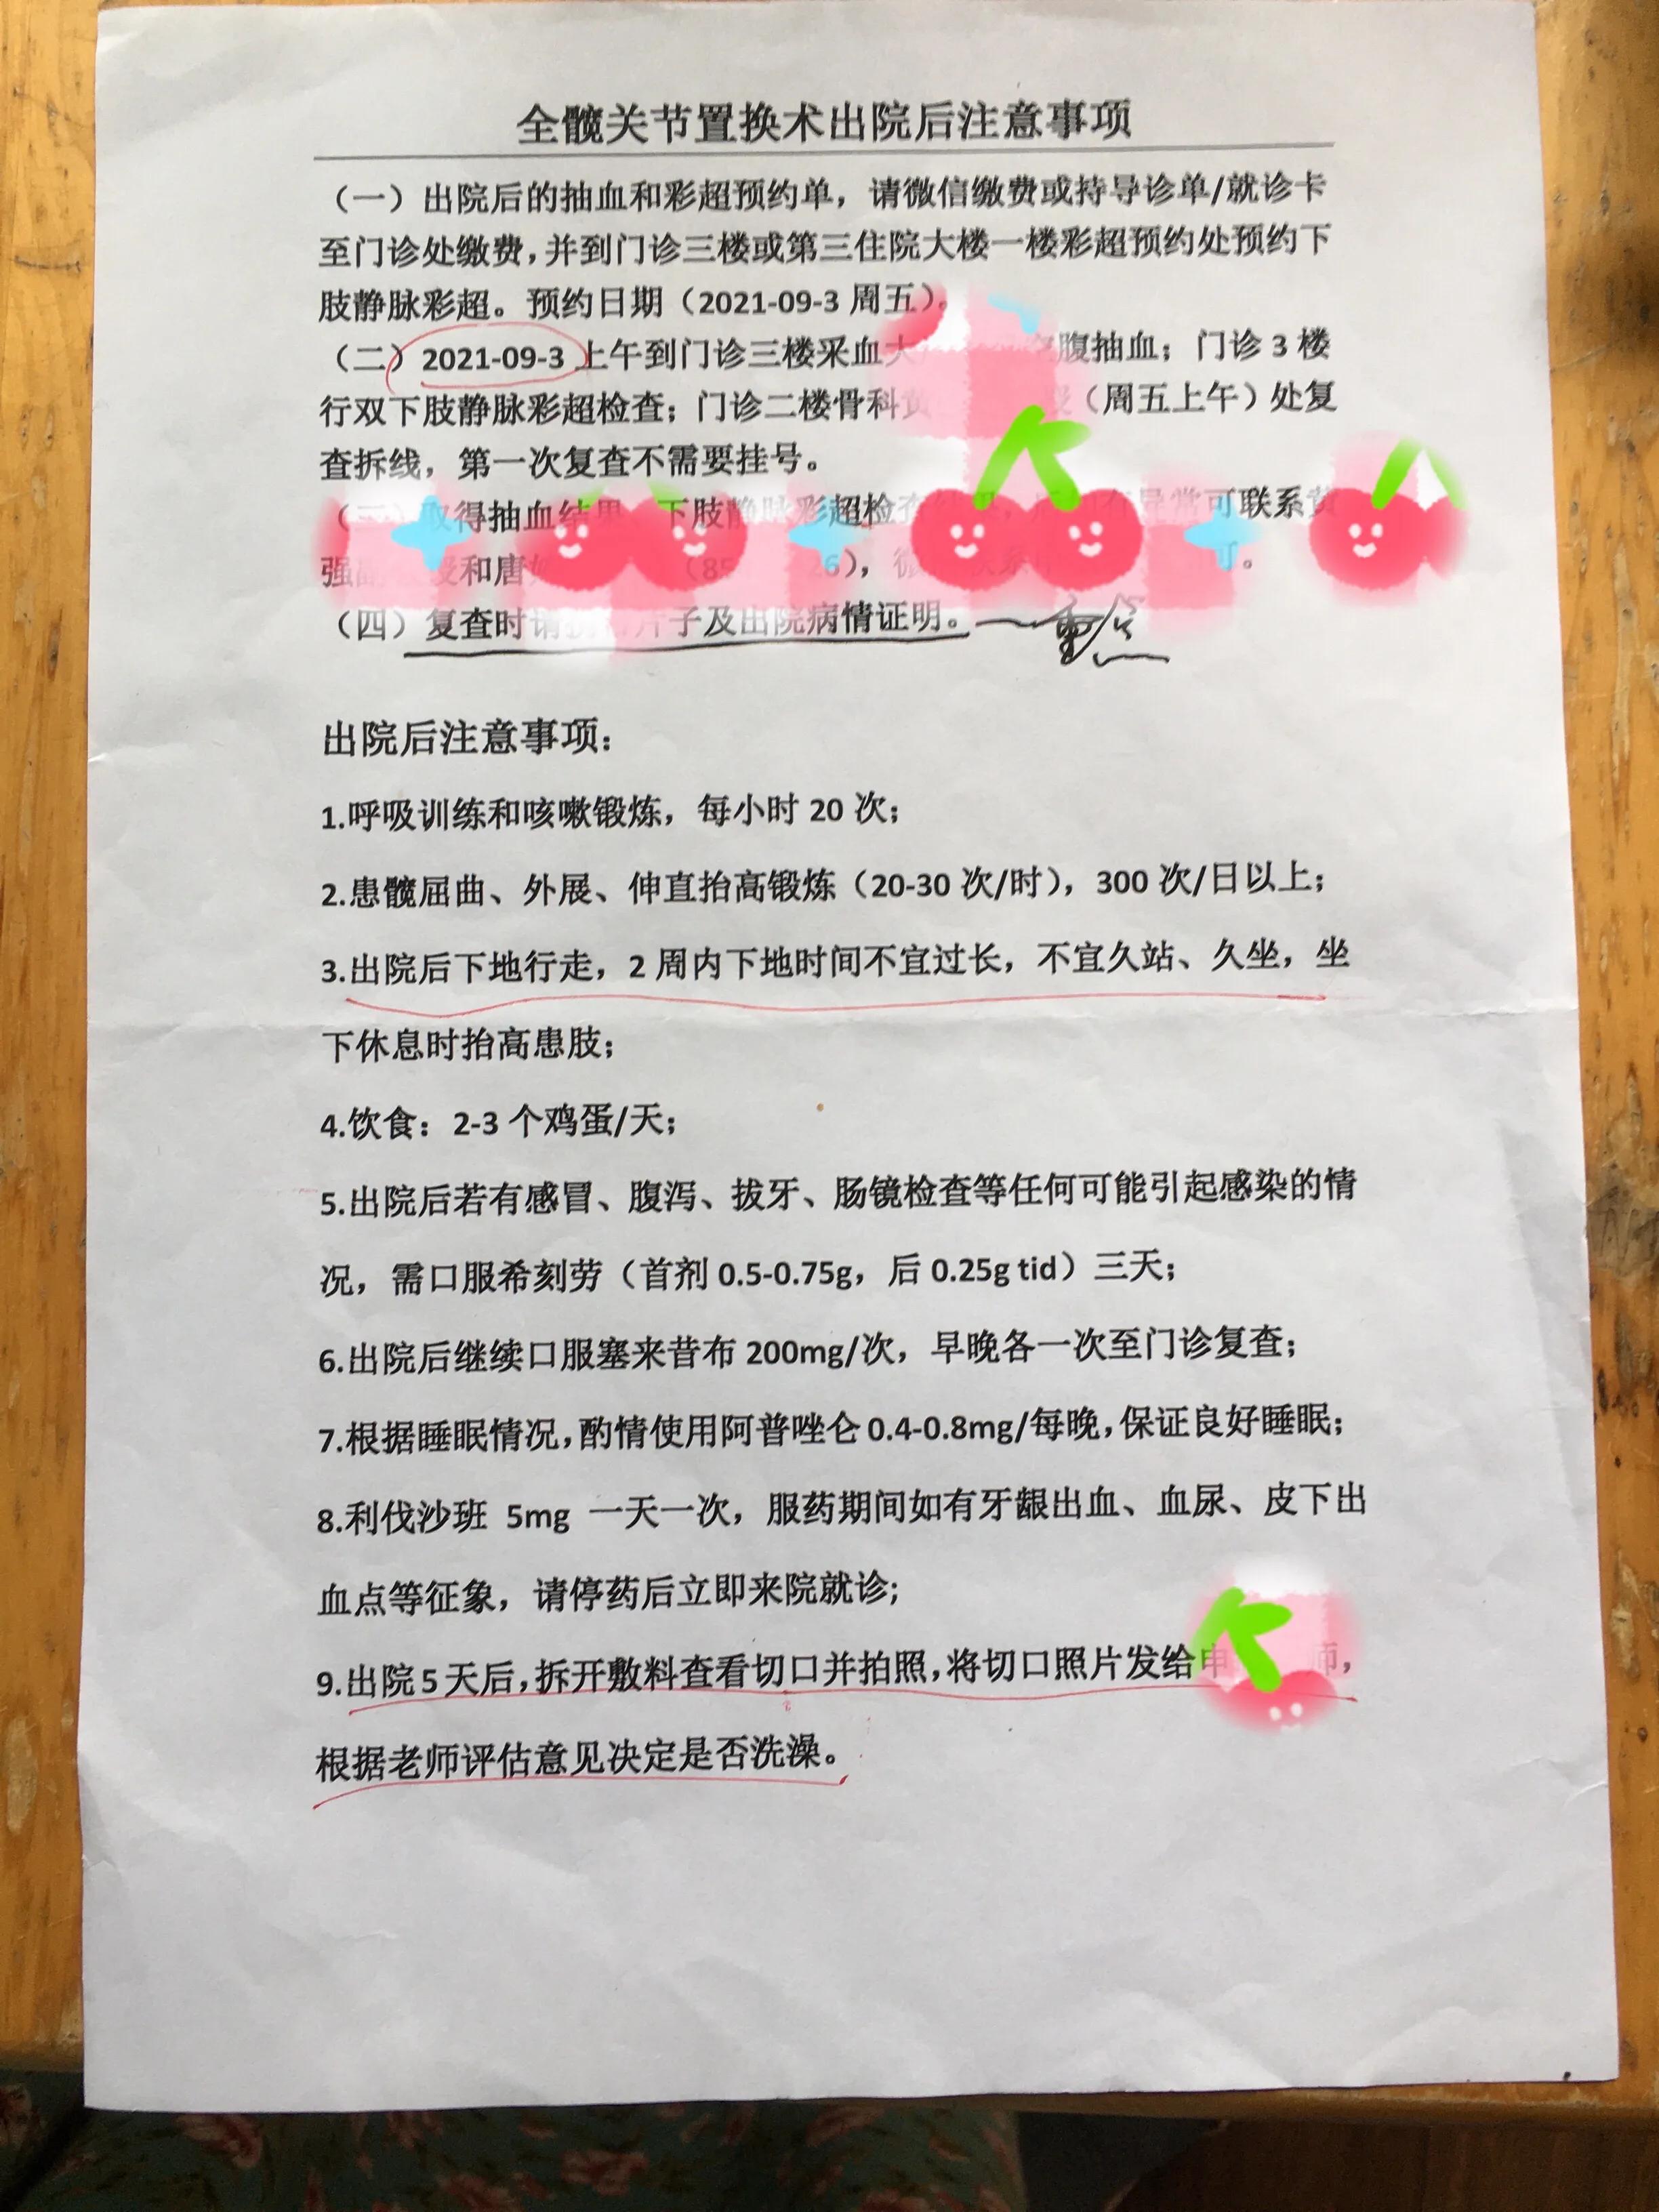 全髋关节置换术出院后注意事项
（一）出院后的抽血和彩超预约单，请微信缴费或持导诊单/就诊卡
至门诊处缴费，并到门诊三楼或第三住院大楼一楼彩超预约处预约下
肢静脉彩超。预约日期（2021-09-3 周五）。
（二）2021-09-3 上午到门诊三楼采血大 腹抽血；门诊 3 楼
行双下肢静脉彩超检查；门诊二楼骨科黄 （周五上午）处复
查拆线，第一次复查不需要挂号。
取得抽血结果 下肢静脉彩超检查 可联系黄
强 和唐
（四）复查时请 片子及出院病情证明。
出院后注意事项：
1.呼吸训练和咳嗽锻炼，每小时 20 次；
2.患髋屈曲、外展、伸直抬高锻炼（20-30 次/时），300 次/日以上；
3.出院后下地行走，2 周内下地时间不宜过长，不宜久站、久坐，坐
下休息时抬高患肢；
4.饮食：2-3 个鸡蛋/天；
5.出院后若有感冒、腹泻、拔牙、肠镜检查等任何可能引起感染的情
况，需口服希刻劳（首剂 0.5-0.75g，后 0.25g tid）三天；
6.出院后继续口服塞来昔布 200mg/次，早晚各一次至门诊复查；
7.根据睡眠情况，酌情使用阿普唑仑 0.4-0.8mg/每晚，保证良好睡眠；
8.利伐沙班 5mg 一天一次，服药期间如有牙龈出血、血尿、皮下出
血点等征象，请停药后立即来院就诊;
9.出院 5 天后，拆开敷料查看切口并拍照，将切口照片发给申 师，
根据老师评估意见决定是否洗澡。